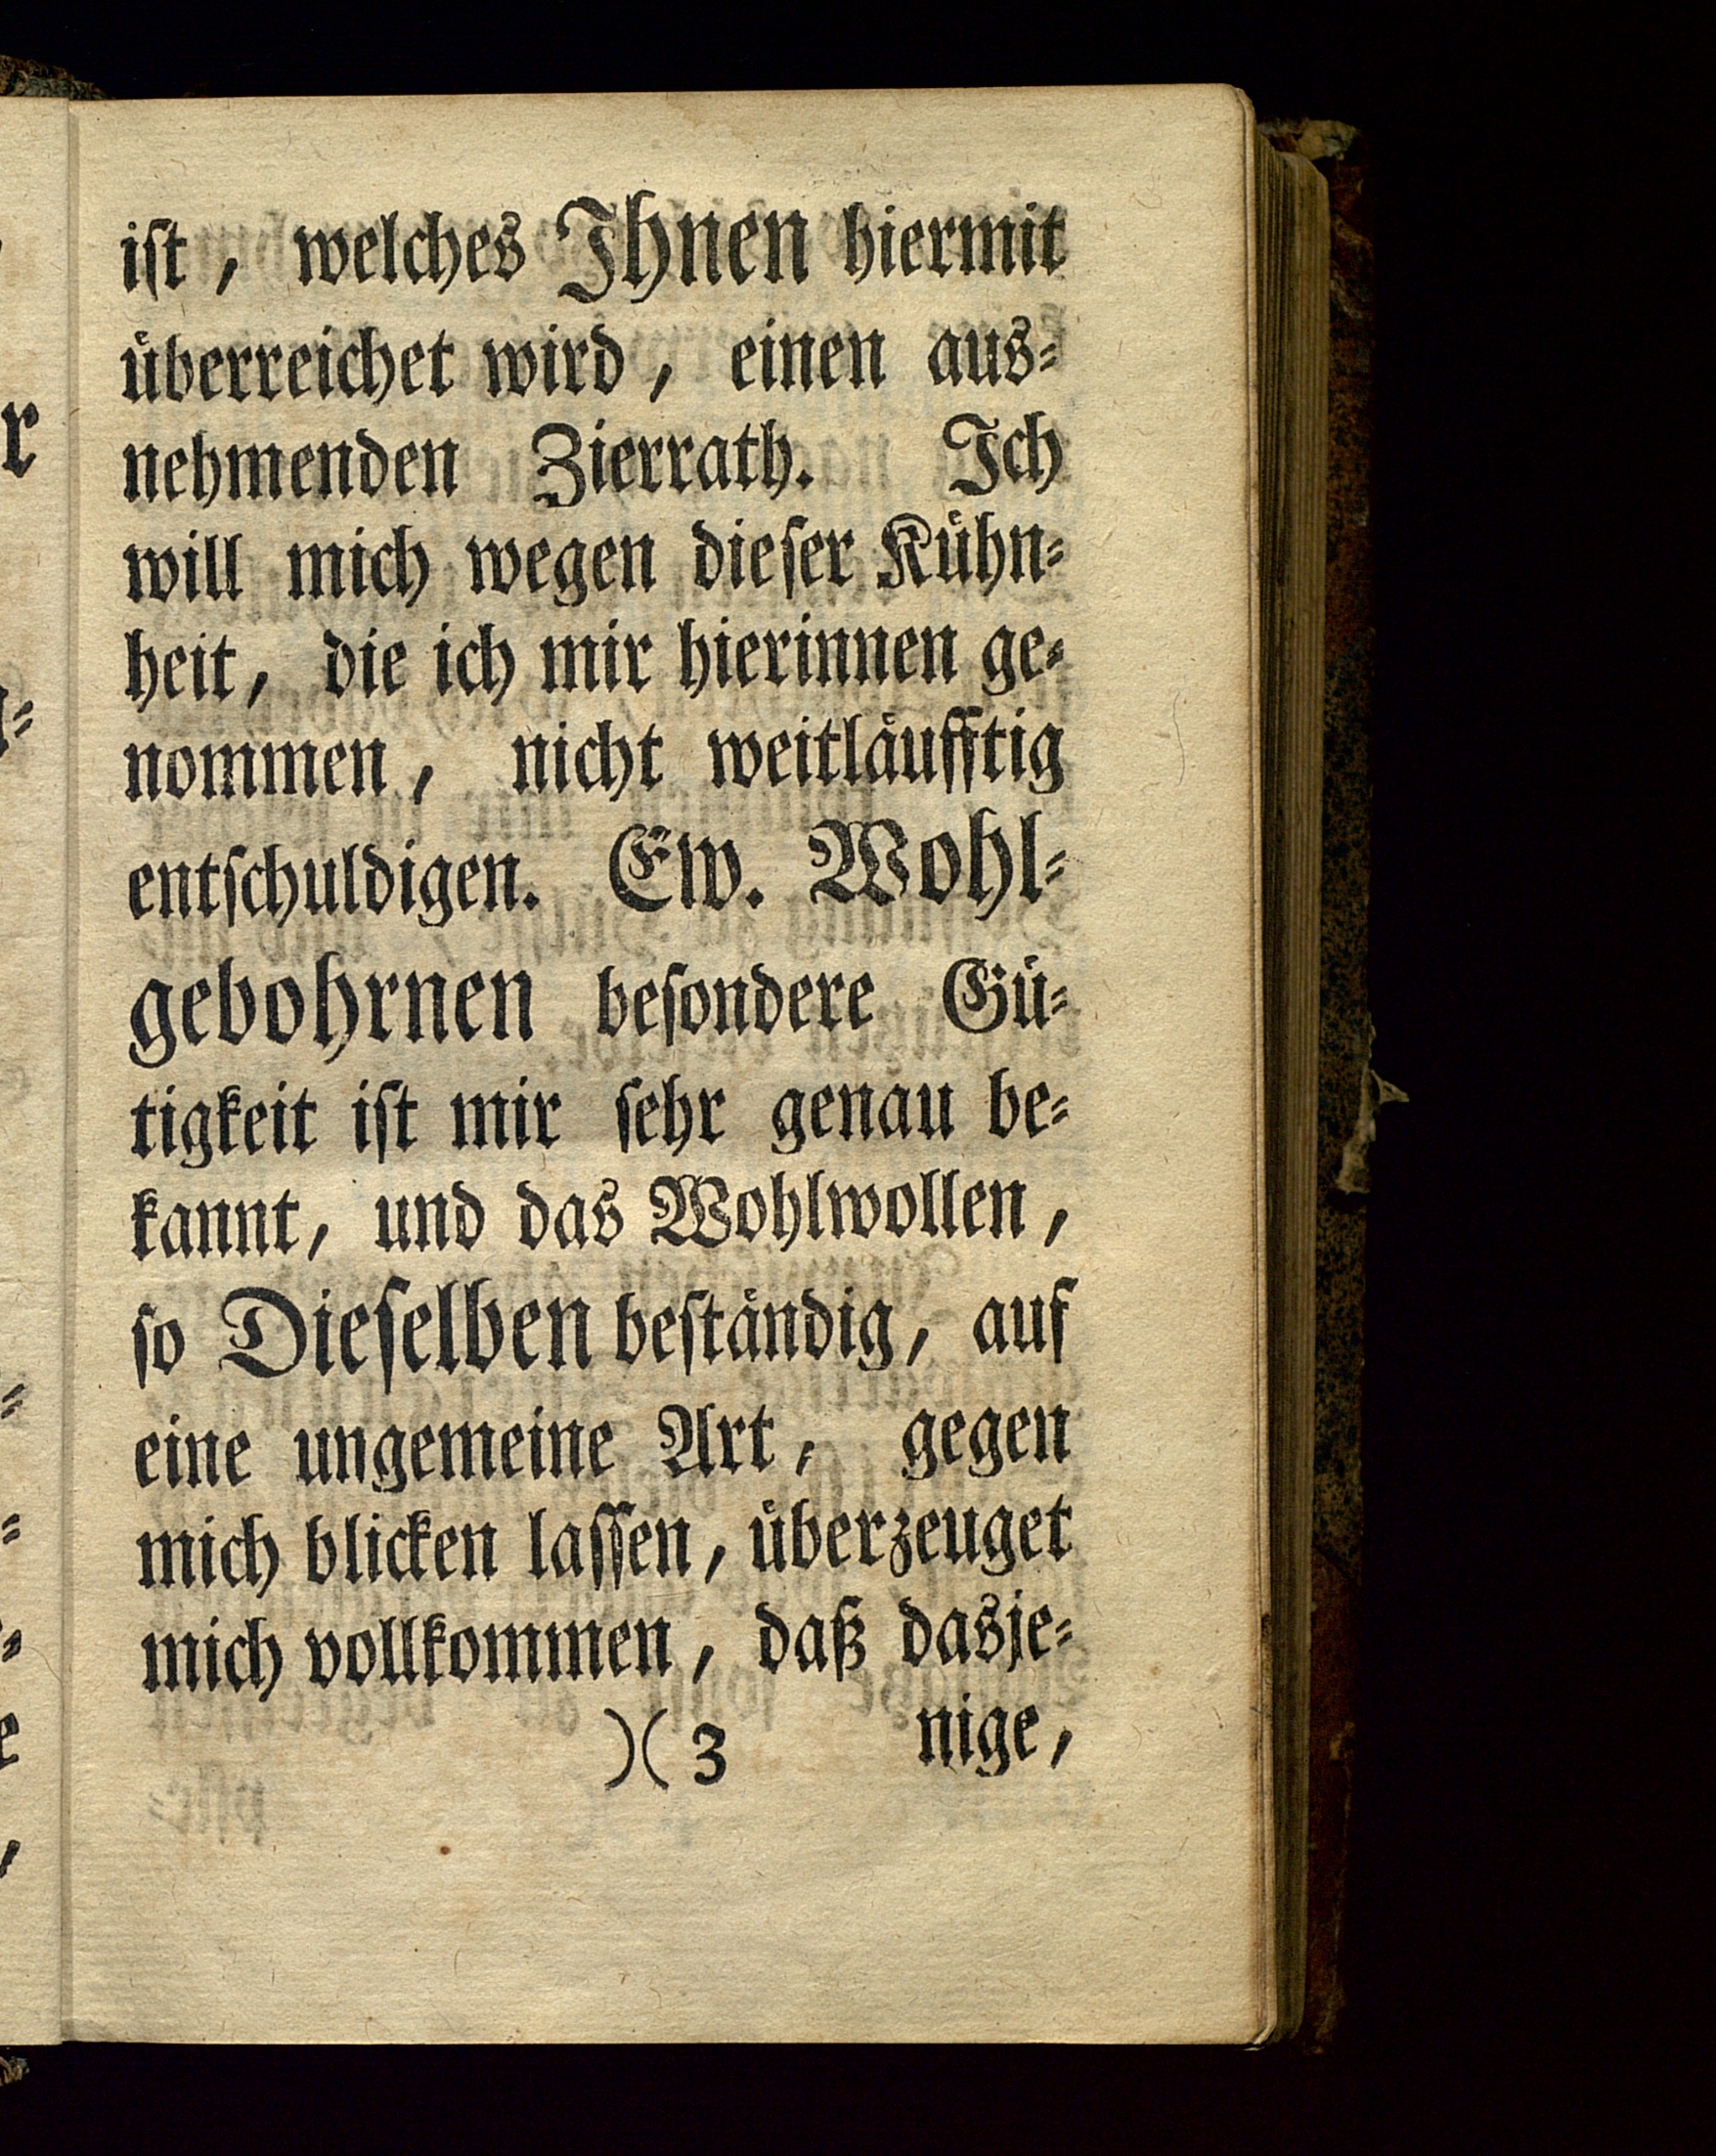 ist, welches Ihnen hiermit
überreichet wird, einen aus-
nehmenden Zierrath. Ich
will mich wegen dieser Kühn-
heit, die ich mir hierinnen ge-
nommen, nicht weitläufftig
entschuldigen. Ew. Wohl-
gebohrnen besondere Gü-
tigkeit ist mir sehr genau be-
kannt, und das Wohlwollen,
so Dieselben beständig, auf
eine ungemeine Art, gegen
mich blicken lassen, überzeuget
mich vollkommen, daß dasje-
)( 3 nige,